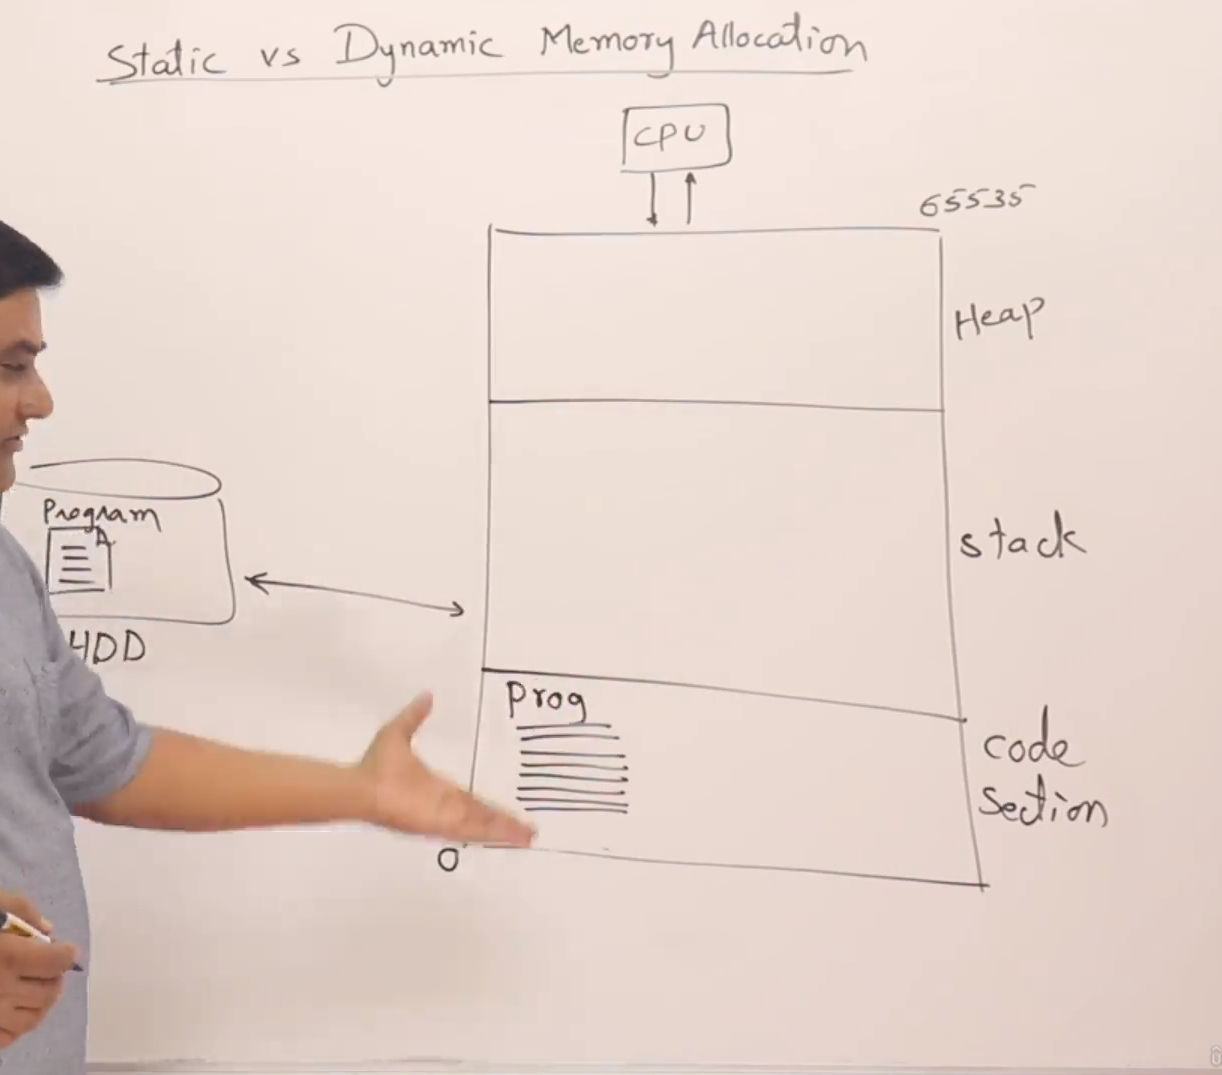 Static vs Dynamic Memory Allocation
CPU
65535
Heap
Program
A
HDD
stack
Prog
code
Section
0